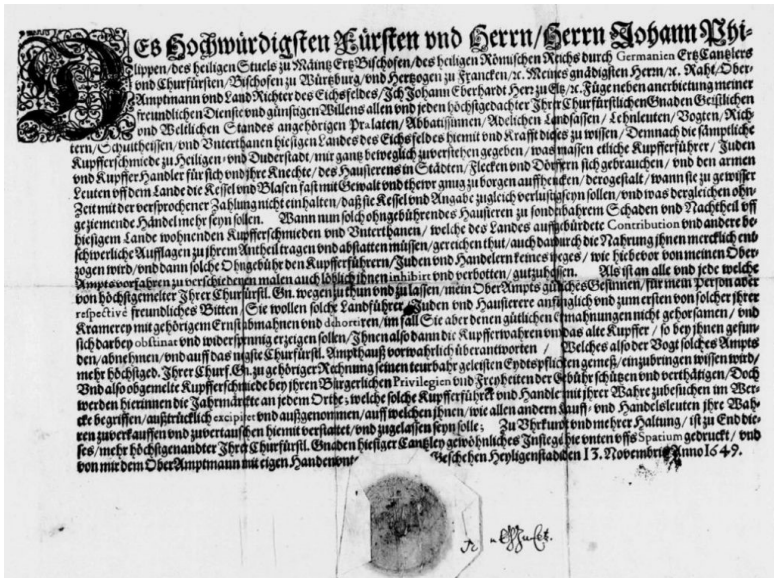 DEs Hochwürdigsten Fürsten vnd Herrn/Herrn Johann Phi-
lippen/des heiligen Stuels zu Mäintz ErtzBischofen/des heiligen Römischen Reichs durch Germanien ErtzCantzlers
vnd Churfürsten/Bischofen zu Würtzburg/vnd Hertzogen zu Francken/ꝛc. Meines gnädigsten Herrn/ꝛc. Raht/Ober-
Amptmann vnd Land Richter des Eichsfeldes/Ich Johann Eberhardt Herꝛ zu Eltz/ꝛc. Füge neben anerbietung meiner
freundlichen Dienste vnd günstigen Willens allen vnd jeden höchstgedachter Ihrer ChurfürstlichenGnaden Geistlichen
vnd Weltlichen Standes angehörigen Prälaten/Abbatissinnen/Adelichen Landsassen/Lehnleuten/Vogten/Rich-
tern/Schultheissen/vnd Vnterthanen hiesigen Landes des Eichsfeldes hiemit vnd Krafft dieses zu wissen/Demnach die sämptliche
Kupfferschmiede zu Heiligen- vnd Duderstadt/mir gantz beweglich zuverstehen gegeben/was massen etliche Kupfferführer/Juden
vnd Kupffer Handler für sich vnd jhre Knechte/des Hausierens in Städten/Flecken vnd Dörffern sich gebrauchen/vnd den armen
Leuten vff dem Lande die Kessel vnd Blasen fast mit Gewalt vnd thewr gnug zu borgen auffhencken/derogestalt/wann sie zu gewisser
Zeit mit der versprochener Zahlung nicht einhalten/daß sie Kessel vnd Angabe zugleich verlustig seyn sollen/vnd was dergleichen ohn-
geziemende Händel mehr seyn sollen. Wann nun solch ohngebührendes Hausieren zu sonderbahrem Schaden vnd Nachtheil vff
hiesigem Lande wohnenden Kupfferschmieden vnd Vnterthanen/welche des Landes auffgebürdete Contribution vnd andere be-
schwerliche Aufflagen zu jhrem Antheil tragen vnd abstatten müssen/gereichen thut/auch dardurch die Nahrung jhnen mercklich ent-
zogen wird/vnd dann solche Ohngebühr den Kupfferführern/Juden vnd Handelern keines weges/wie hiebevor von meinen Ober-
Ampts vorfahren zu verschiedenen malen auch löblich jhnen inhibirt vnd verbotten/gutzuheissen. Als ist an alle vnd jede welche
von höchstgemelter Ihrer Churfürstl. Gn. wegen zu thun vnd zu lassen/mein OberAmpts gütliches Gesinnen/für mein Person aber
respectivè freundliches Bitten/Sie wollen solche Landführer/Juden vnd Hausierere anfänglich vnd zum ersten von solcher jhrer
Kramerey mit gehörigem Ernst abmahnen vnd dehortiren/im fall Sie aber denen gütlichen Ermahnungen nicht gehorsamen/vnd
sich darbey obstinat vnd widerspennig erzeigen sollen/Ihnen also dann die Kupfferwahren vnd das alte Kupffer/so bey jhnen gefun-
den/abnehmen/vnd auff das nigste Churfürstl. Ampthauß vorwahrlich überantworten/Welches also der Vogt solches Ampts
mehr höchstged. Ihrer Churf. Gn. zu gehöriger Rechnung seinen teurbahr geleisten Eydtspflichten gemeß/einzubringen wissen wird/
Vnd also obgemelte Kupfferschmiede bey jhren Bürgerlichen Privilegien vnd Freyheiten der Gebühr schützen vnd verthätigen/Doch
werden hierinnen die Jahrmärckte an jedem Orthe; welche solche Kupfferführer vnd Handler mit jhrer Wahre zubesuchen im Wer-
cke begriffen/außtrücklich excipiret vnd außgenommen/auff welchen jhnen/wie allen andern Kauff- vnd Handelsleuten jhre Wah-
ren zuverkauffen vnd zuvertauschen hiemit verstattet/vnd zugelassen seyn solle; Zu Vhrkunt vnd mehrer Haltung/ist zu End die-
ses/mehr höchstgenandter Ihrer Churfürstl. Gnaden hiesiger Cantzley gewöhnliches Insiegel hie vnten vffs Spatium gedruckt/vnd
von mir dem OberAmptmann mit eigen Handen Geschehen Heyligenstad den 13. Novembris Anno 1649.